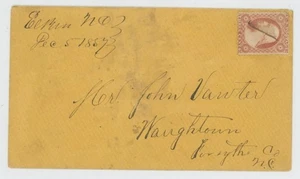 Elkin N.C.
Dec 5 1857
Mr John Vawter
Waughtown
Forsythe Co
N.C